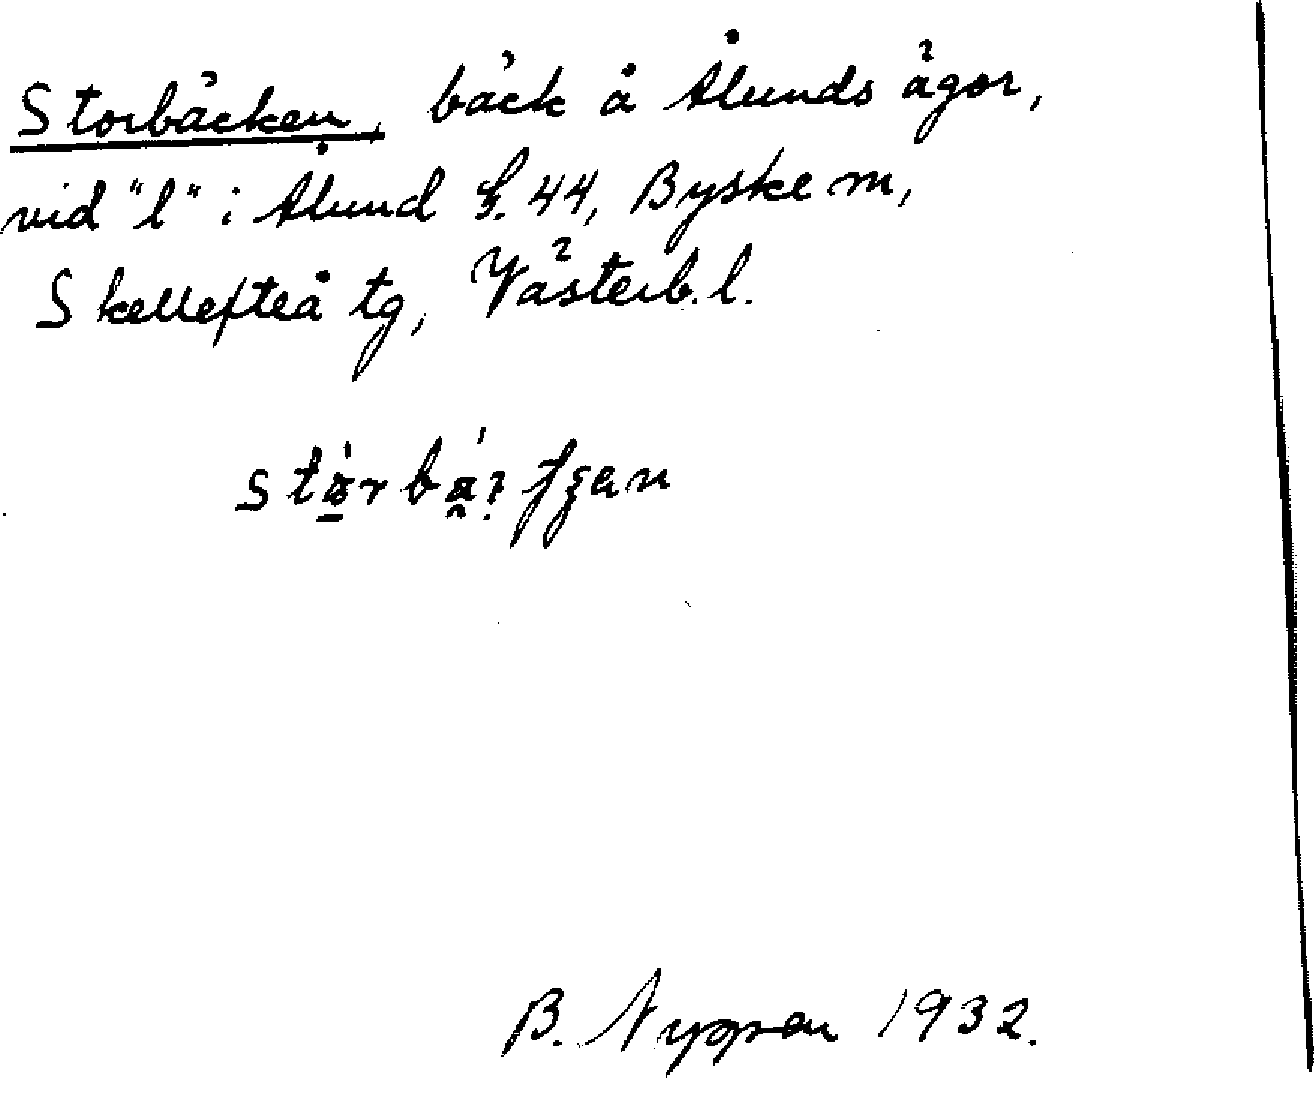 Storbäcken, bäck å Ålunds ägor,
vid "l" i Ålund §. 44, Byske sn,
Skellefteå tg, Västerb. l.
B. Nyppen 1932.